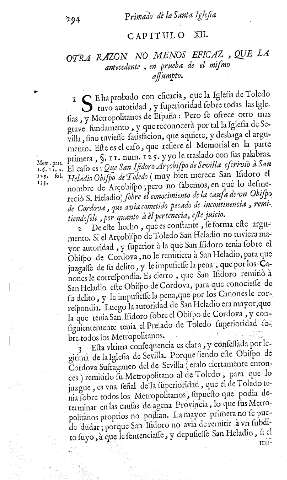 294 Primado de la Santa Iglesia
CAPITULO XII.
OTRA RAZON NO MENOS EFICAZ, QUE LA
antecedente, en prueba de el mismo
assumpto.
1 SE ha probado con eficacia, que la Iglesia de Toledo
tuvo autoridad, y superioridad sobre todas las Igle-
sias, y Metropolitanos de España: Pero se ofrece otro mas
grave fundamento, y que reconocerá por tal la Iglesia de Se-
villa, sino tuviesse satisfacion, que aquiete, y desaga el argu-
mento. Este es el caso, que refiere el Memorial en la parte
primera, §. 11. num. 125. y yo le traslado con sus palabras.
El caso es: Que San Isidoro Arçobispo de Sevilla escrivió à San
Heladio Obispo de Toledo (muy bien merece San Isidoro el
nombre de Arçobispo, pero no sabemos, en què lo desme-
reció S. Heladio) sobre el conocimiento de la causa de un Obispo
de Cordova, que avia cometido pecado de incontinencia, remi-
tiendosele, por quanto à èl pertenecia, este juicio.
Mem. part.
1. §. 11. n.
125. fol.
2 De este hecho, que es constante, se forma este argu-
mento. Si el Arçobispo de Toledo San Heladio no tuviera ma-
yor autoridad, y superior à la que San Isidoro tenia sobre el
Obispo de Cordova, no le remitiera à San Heladio, para que
juzgasse de su delito, y le impusiesse la pena, que por los Ca-
nones le correspondia. Es claro, que San Isidoro remitió à
San Heladio este Obispo de Cordova, para que conociesse de
su delito, y la impusiesse la pena, que por los Canones le cor-
respondia. Luego la autoridad de San Heladio era mayor, que
la que tenia San Isidoro sobre el Obispo de Cordova, y con-
siguientemente tenia el Prelado de Toledo superioridad so-
bre todos los Metropolitanos.
3 Esta ultima consequencia es clara, y confessada por le-
gitima de la Iglesia de Sevilla. Porque siendo este Obispo de
Cordova Sufraganeo del de Sevilla (eralo ciertamente enton-
ces) remitirlo su Metropolitano al de Toledo, para que lo
juzgue, es una señal de la superioridad, que el de Toledo te-
nia sobre todos los Metropolitanos, supuesto que podia de-
terminar en las causas de agena Provincia, lo que sus Metro-
politanos proprios no podian. La mayor primera no se pue-
de dudar; porque San Isidoro no avia de remitir à un subdi-
to suyo, à que le sentenciasse, y depusiesse San Heladio, si el
mis-